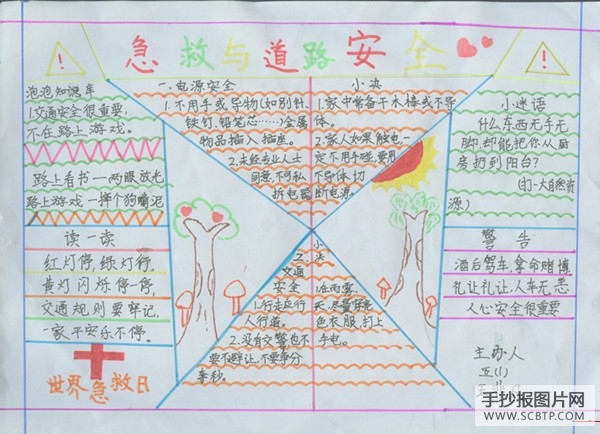 急救与道路安全
泡泡知识库
1.交通安全很重要,
不在路上游戏。
路上看书一两眼放光
路上游戏一摔个狗啃泥
读一读
红灯停,绿灯行,
黄灯闪烁停一停,
交通规则要牢记,
一家平安乐不停。
世界急救日
一.电源安全
1.不用手或导物(如别针、
铁钉、铅笔芯……)金属
物品插入插座。
2.未经专业人士
同意,不可私
拆电器
小决
1.家中常备干木棒或不导
体。
2.家人如果触电,一
定不用手碰,要用
不导体切
断电源。
二.
交通
安全
1.行走应行
人行道。
2.没有交警也不
要不避让,不要争分
夺秒。
小
决
在雨雾
天,尽量穿亮
色衣服,打上
手电。
小迷语
什么东西无手无
脚,却能把你从厨
房扔到阳台?
(打一大自然资
源)
警告
酒后驾车,拿命赌博
礼让礼让,人车无恙
人心安全很重要
主办人
五(1)
手抄报图片网
WWW.SCBTP.COM